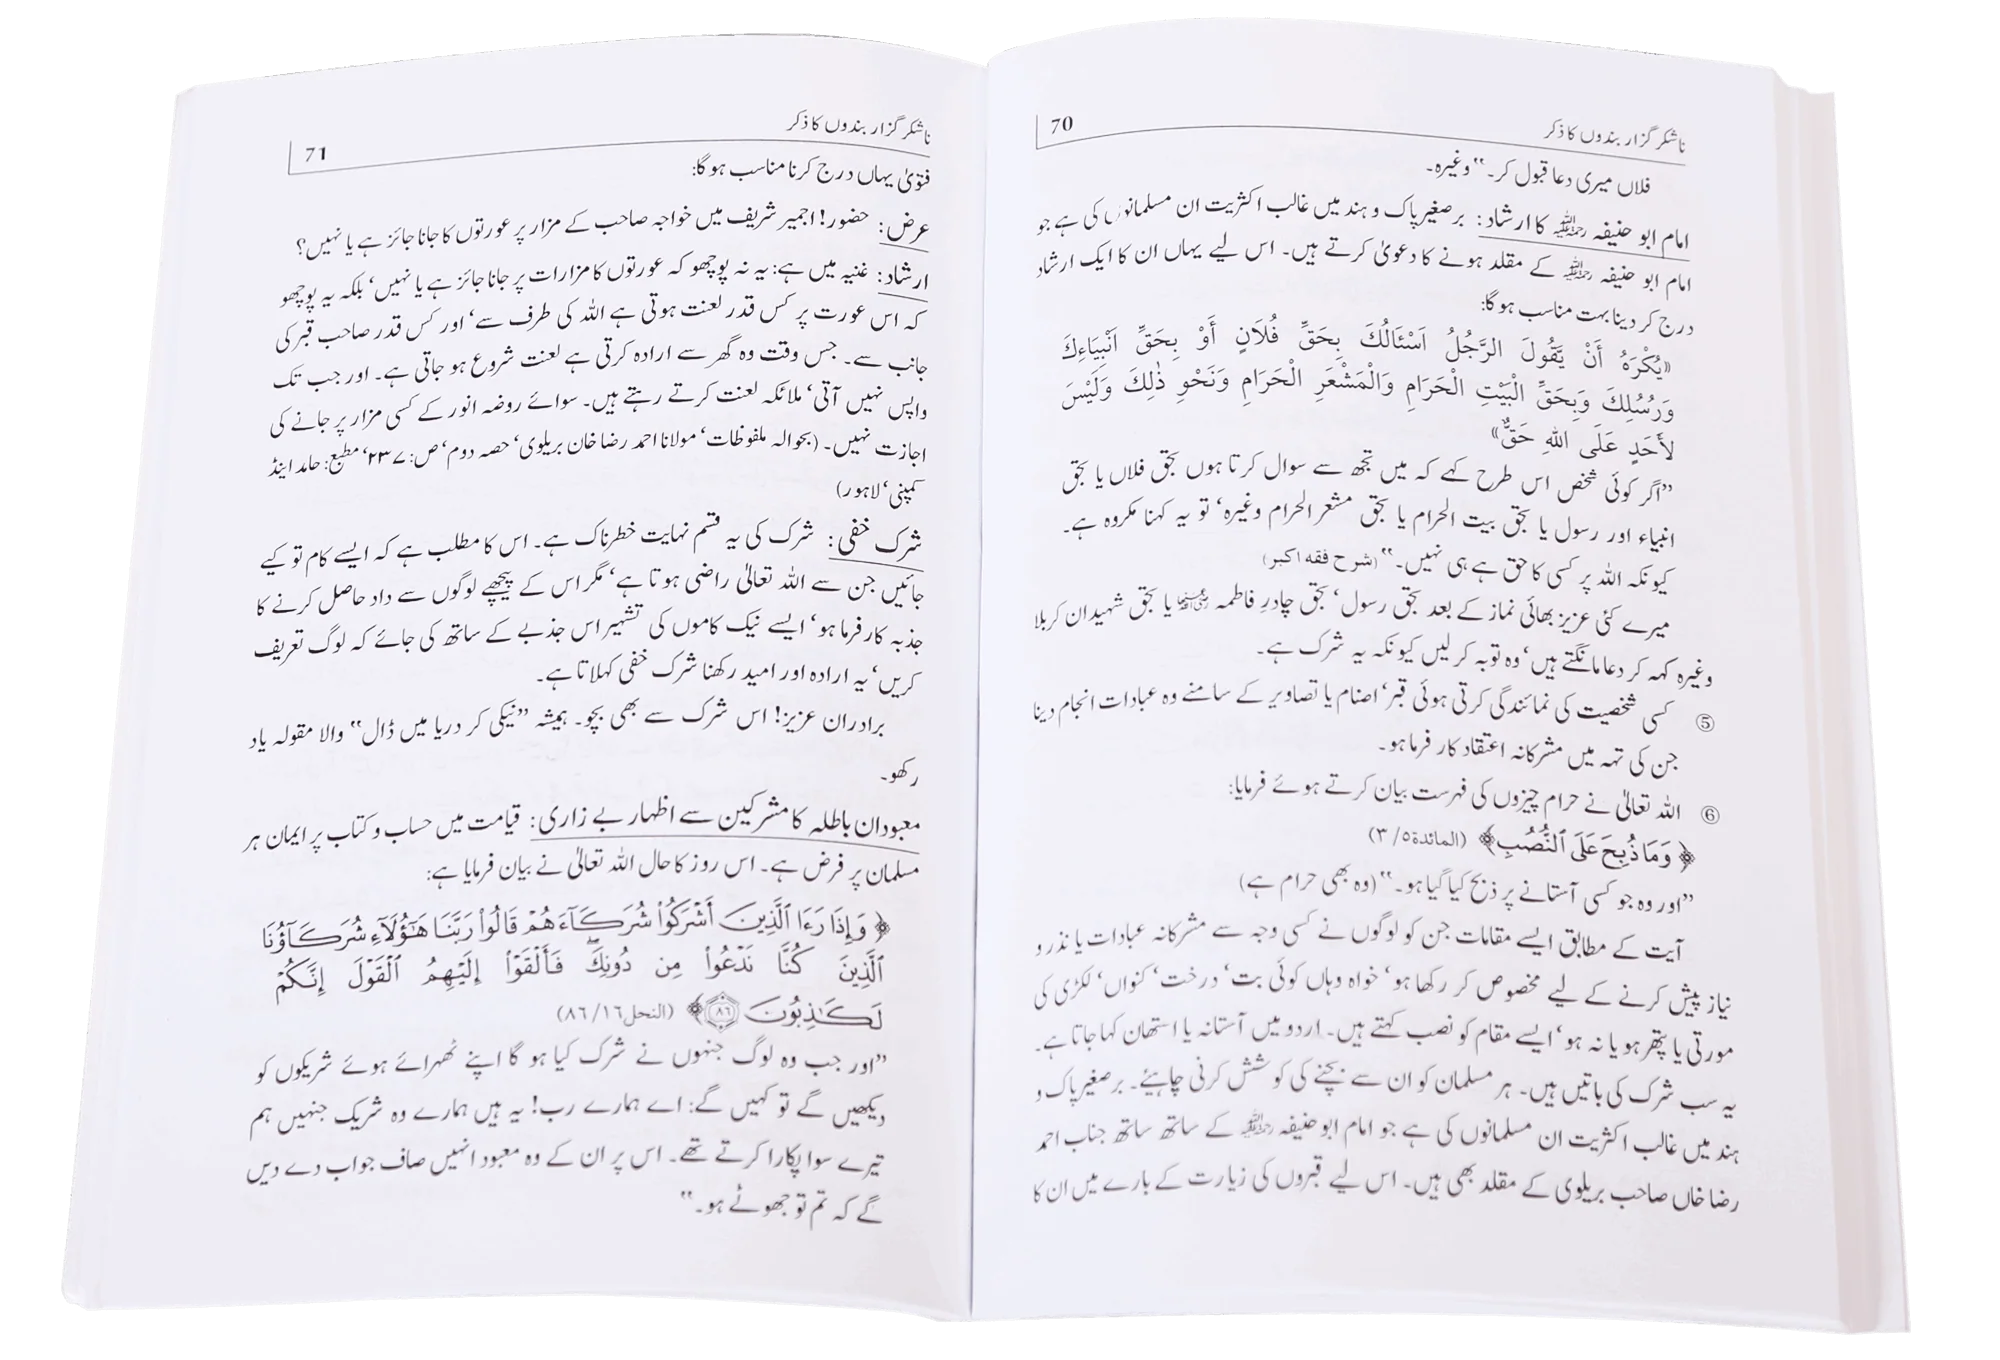 ناشکر گزار بندوں کا ذکر
70
فلاں میری دعا قبول کر۔‟ وغیرہ۔
امام ابو حنیفہ رحمہ اللہ کا ارشاد: برصغیر پاک و ہند میں غالب اکثریت ان مسلمانوں کی ہے جو
امام ابو حنیفہ رحمہ اللہ کے مقلد ہونے کا دعویٰ کرتے ہیں۔ اس لیے یہاں ان کا ایک ارشاد
درج کر دینا بہت مناسب ہوگا:
«يُكْرَهُ أَنْ يَقُولَ الرَّجُلُ اَسْئَالُكَ بِحَقِّ فُلَانٍ أَوْ بِحَقِّ اَنْبِيَاءِكَ
وَرُسُلِكَ وَبِحَقِّ الْبَيْتِ الْحَرَامِ وَالْمَشْعَرِ الْحَرَامِ وَنَحْوِ ذٰلِكَ وَلَيْسَ
لِأَحَدٍ عَلَى اللهِ حَقٌّ»
”اگر کوئی شخص اس طرح کہے کہ میں تجھ سے سوال کرتا ہوں بحق فلاں یا بحق
انبیاء اور رسول یا بحق بیت الحرام یا بحق مشعر الحرام وغیرہ‘ تو یہ کہنا مکروہ ہے۔
کیونکہ اللہ پر کسی کا حق ہے ہی نہیں۔‟ (شرح فقه اكبر)
میرے کئی عزیز بھائی نماز کے بعد بحق رسول‘ بحق چادرِ فاطمہ یا بحق شہیدان کربلا
وغیرہ کہہ کر دعا مانگتے ہیں‘ وہ توبہ کر لیں کیونکہ یہ شرک ہے۔
⑤ کسی شخصیت کی نمائندگی کرتی ہوئی قبر‘ اصنام یا تصاویر کے سامنے وہ عبادات انجام دینا
جن کی تہہ میں مشرکانہ اعتقاد کار فرما ہو۔
⑥ اللہ تعالیٰ نے حرام چیزوں کی فہرست بیان کرتے ہوئے فرمایا:
﴿وَمَا ذُبِحَ عَلَى ٱلنُّصُبِ﴾ (المائدة٥/ ٣)
”اور وہ جو کسی آستانے پر ذبح کیا گیا ہو۔‟ (وہ بھی حرام ہے)
آیت کے مطابق ایسے مقامات جن کو لوگوں نے کسی وجہ سے مشرکانہ عبادات یا نذر و
نیاز پیش کرنے کے لیے مخصوص کر رکھا ہو‘ خواہ وہاں کوئی بت‘ درخت‘ کنواں‘ لکڑی کی
مورتی یا پتھر ہو یا نہ ہو‘ ایسے مقام کو نصب کہتے ہیں۔ اردو میں آستانہ یا استھان کہا جاتا ہے۔
یہ سب شرک کی باتیں ہیں۔ ہر مسلمان کو ان سے بچنے کی کوشش کرنی چاہیئے۔ برصغیر پاک و
ہند میں غالب اکثریت ان مسلمانوں کی ہے جو امام ابو حنیفہ رحمہ اللہ کے ساتھ ساتھ جناب احمد
رضا خاں صاحب بریلوی کے مقلد بھی ہیں۔ اس لیے قبروں کی زیارت کے بارے میں ان کا
ناشکر گزار بندوں کا ذکر
71
فتویٰ یہاں درج کرنا مناسب ہوگا:
عرض: حضور! اجمیر شریف میں خواجہ صاحب کے مزار پر عورتوں کا جانا جائز ہے یا نہیں؟
ارشاد: غنیہ میں ہے: یہ نہ پوچھو کہ عورتوں کا مزارات پر جانا جائز ہے یا نہیں‘ بلکہ یہ پوچھو
کہ اس عورت پر کس قدر لعنت ہوتی ہے اللہ کی طرف سے‘ اور کس قدر صاحب قبر کی
جانب سے۔ جس وقت وہ گھر سے ارادہ کرتی ہے لعنت شروع ہو جاتی ہے۔ اور جب تک
واپس نہیں آتی‘ ملائکہ لعنت کرتے رہتے ہیں۔ سوائے روضہ انور کے کسی مزار پر جانے کی
اجازت نہیں۔ (بحوالہ ملفوظات‘ مولانا احمد رضا خان بریلوی‘ حصہ دوم‘ ص: ۲۳۷‘ مطبع: حامد اینڈ
کمپنی‘ لاہور)
شرک خفی: شرک کی یہ قسم نہایت خطرناک ہے۔ اس کا مطلب ہے کہ ایسے کام تو کیے
جائیں جن سے اللہ تعالیٰ راضی ہوتا ہے‘ مگر اس کے پیچھے لوگوں سے داد حاصل کرنے کا
جذبہ کار فرما ہو‘ ایسے نیک کاموں کی تشہیر اس جذبے کے ساتھ کی جائے کہ لوگ تعریف
کریں‘ یہ ارادہ اور امید رکھنا شرک خفی کہلاتا ہے۔
برادران عزیز! اس شرک سے بھی بچو۔ ہمیشہ ”نیکی کر دریا میں ڈال‟ والا مقولہ یاد
رکھو۔
معبودان باطلہ کا مشرکین سے اظہار بے زاری: قیامت میں حساب و کتاب پر ایمان ہر
مسلمان پر فرض ہے۔ اس روز کا حال اللہ تعالیٰ نے بیان فرمایا ہے:
﴿وَإِذَا رَءَا ٱلَّذِينَ أَشْرَكُوا۟ شُرَكَآءَهُمْ قَالُوا۟ رَبَّنَا هَـٰٓؤُلَآءِ شُرَكَآؤُنَا
ٱلَّذِينَ كُنَّا نَدْعُوا۟ مِن دُونِكَ ۖ فَأَلْقَوْا۟ إِلَيْهِمُ ٱلْقَوْلَ إِنَّكُمْ
لَكَـٰذِبُونَ ٨٦﴾ (النحل١٦/ ٨٦)
”اور جب وہ لوگ جنہوں نے شرک کیا ہو گا اپنے ٹھہرائے ہوئے شریکوں کو
دیکھیں گے تو کہیں گے: اے ہمارے رب! یہ ہیں ہمارے وہ شریک جنہیں ہم
تیرے سوا پکارا کرتے تھے۔ اس پر ان کے وہ معبود انہیں صاف جواب دے دیں
گے کہ تم تو جھوٹے ہو۔‟